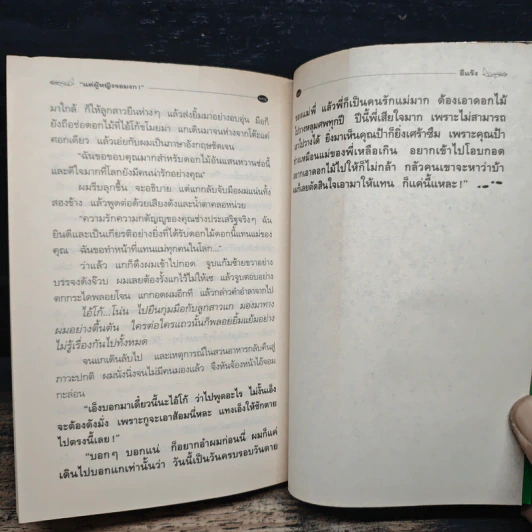 "แด่ผู้หญิงจอมงก!"
มาใกล้ ก็ให้ลูกสาวยืนห่างๆ แล้วส่งยิ้มมาอย่างอบอุ่น มือก็
ยังถือช่อดอกไม้ที่ไอ้โก้ขโมยมา แกเดินมาจนห่างจากโต๊ะแค่
ศอกเดียว แล้วเอ่ยกับผมเป็นภาษาอังกฤษชัดเจน
"ฉันขอขอบคุณมากสำหรับดอกไม้อันแสนหวานช่อนี้
และดีใจมากที่โลกยังมีคนน่ารักอย่างคุณ"
ผมรีบลุกขึ้น จะอธิบาย แต่แกกลับจับมือผมแน่นทั้ง
สองข้าง แล้วพูดต่อด้วยเสียงดังและน้ำตาคลอหน่วย
"ความรักความกตัญญูของคุณช่างประเสริฐจริงๆ ฉัน
ยินดีและเป็นเกียรติอย่างยิ่งที่ได้รับดอกไม้ดอกนี้แทนแม่ของ
คุณ ฉันขอทำหน้าที่แทนแม่ทุกคนในโลก..."
ว่าแล้ว แกก็ดึงผมเข้าไปกอด จูบแก้มซ้ายขวาอย่าง
บรรจงดังจ๊วบ ผมเลยต้องรั้งแกไว้ไม่ให้เซ แล้วจูบตอบอย่าง
ตกกระไดพลอยโจน แกกอดผมอีกที แล้วกล่าวคำอำลาจากไป
ไอ้โก้...โน่น ไปยืนกุมมือกับลูกสาวแก มองมาทาง
ผมอย่างตื้นตัน ใครต่อใครแถวนั้นก็พลอยยิ้มแย้มอย่าง
ไม่รู้เรื่องกันไปทั้งหมด
จนแกเดินลับไป และเหตุการณ์ในสวนอาหารกลับคืนสู่
ภาวะปกติ ผมนั่งนิ่งจนไม่มีคนมองแล้ว จึงหันจ้องหน้าไอ้จอม
กะล่อน
"เอ็งบอกมาเดี๋ยวนี้นะไอ้โก้ ว่าไปพูดอะไร ไม่งั้นเอ็ง
จะต้องดังมั่ง เพราะกูจะเอาส้อมนี่หละ แทงเอ็งให้ชักตาย
ไปตรงนี้เลย!"
"บอกๆ บอกแน่ ก็อยากอำผมก่อนนี่ ผมก็แค่
เดินไปบอกแกเท่านั้นว่า วันนี้เป็นวันครบรอบวันตาย
ยืนเริง
ของแม่พี่ แล้วพี่ก็เป็นคนรักแม่มาก ต้องเอาดอกไม้
ไปวางหลุมศพทุกปี ปีนี้พี่เสียใจมาก เพราะไม่สามารถ
เอาไปวางได้ ยิ่งมาเห็นคุณป้าก็ยิ่งเศร้าซึม เพราะคุณป้า
ช่างเหมือนแม่ของพี่เหลือเกิน อยากเข้าไปโอบกอด
อยากเอาดอกไม้ไปให้ก็ไม่กล้า กลัวคนเขาจะหาว่าบ้า
ผมก็เลยตัดสินใจเอามาให้แทน ก็แค่นี้แหละ!"